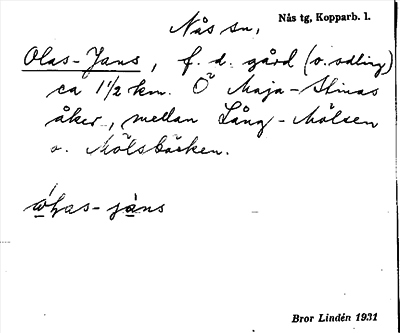 Nås sn, Nås tg, Kopparb. l.
Olas-Jans, f. d. gård (o. odling)
ca 1 1/2 km. Ö Maja-Stinas
åker, mellan Lång-Mölsen
o. Mölsbäcken.
-jàns
Bror Lindén 1931